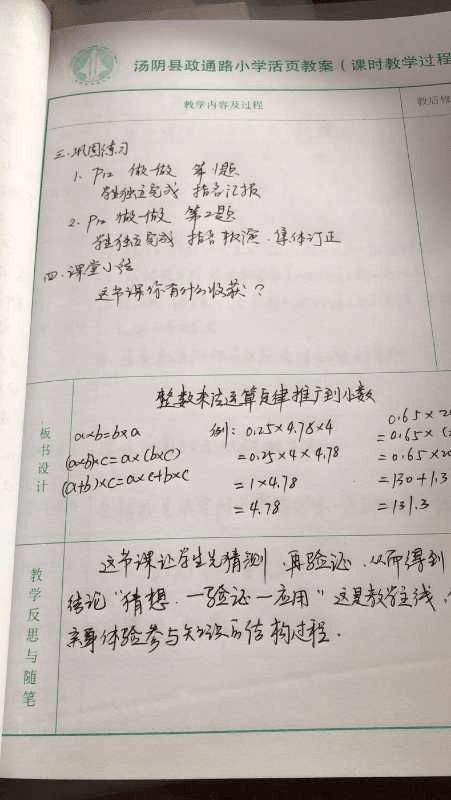 汤阴县政通路小学活页教案（课时教学过程
教学内容及过程
教后修
三、巩固练习
1. P12 做一做 第1题
学生独立完成 指名汇报
2. P12 做一做 第2题
学生独立完成 指名板演、集体订正
四、课堂小结
这节课你有什么收获？
板书设计
整数乘法运算定律推广到小数
a×b=b×a
(a×b)×c=a×(b×c)
(a+b)×c=a×c+b×c
例：0.25×4.78×4
=0.25×4×4.78
=1×4.78
=4.78
0.65×20
=0.65×(2
=0.65×20
=130+1.3
=131.3
教学反思与随笔
这节课让学生先猜测、再验证、从而得到
结论"猜想－验证－应用"这是教学主线，
亲身体验参与知识的结构过程.